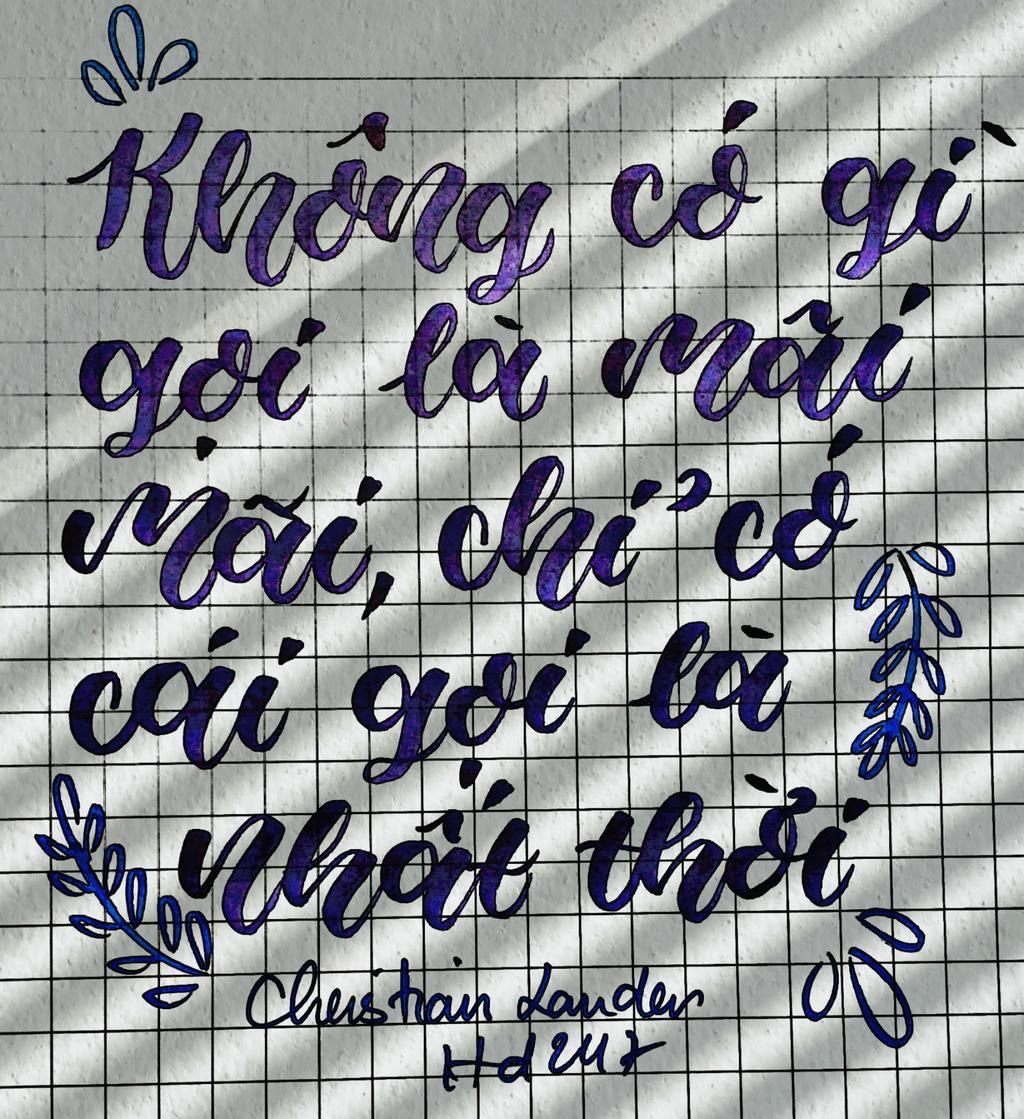 Không có gì
gọi là mãi
mãi, chỉ có
cái gọi là
nhất thời
Christian Lander
Hd247